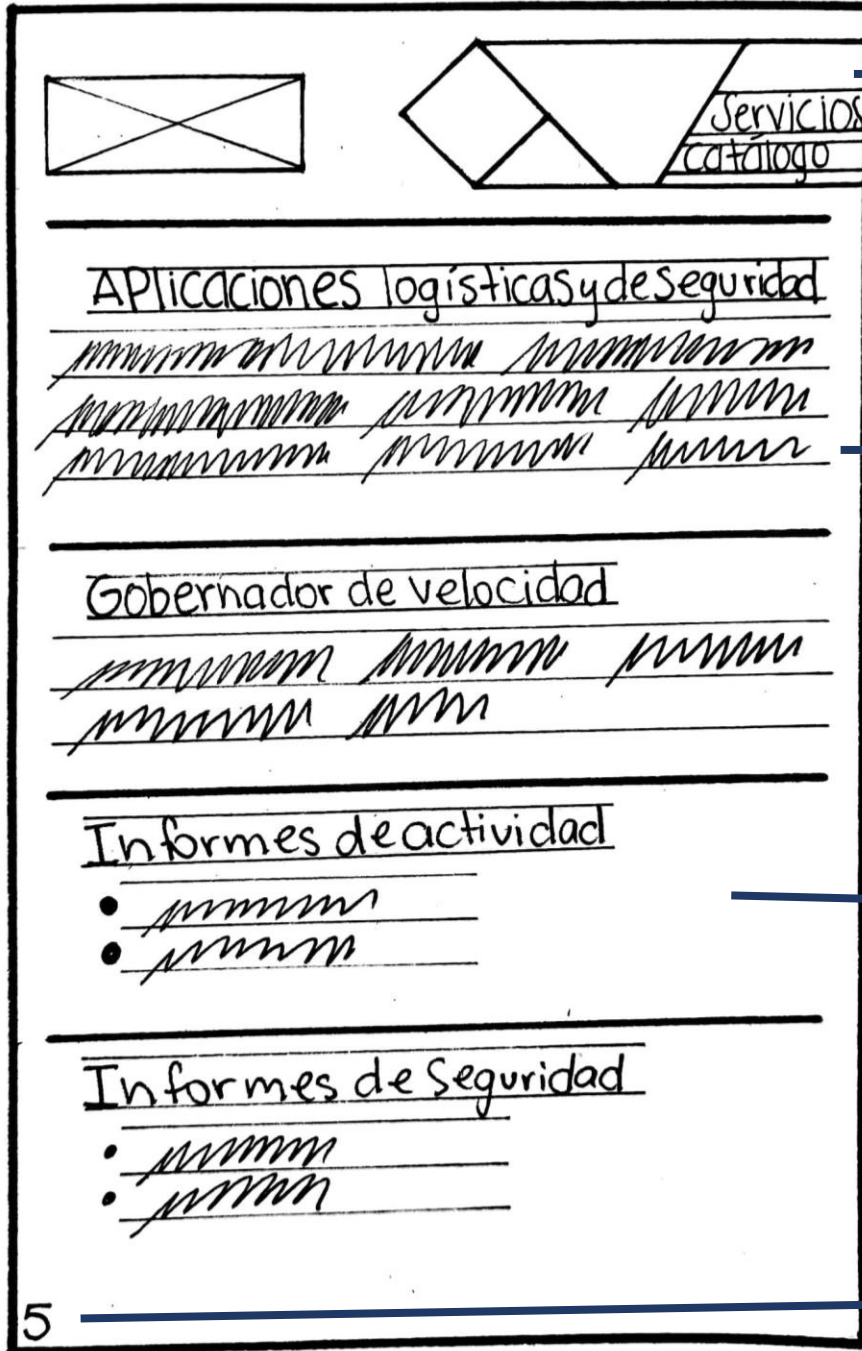 Servicios
catálogo
Aplicaciones logísticas y de seguridad
Gobernador de velocidad
Informes de actividad
Informes de Seguridad
5